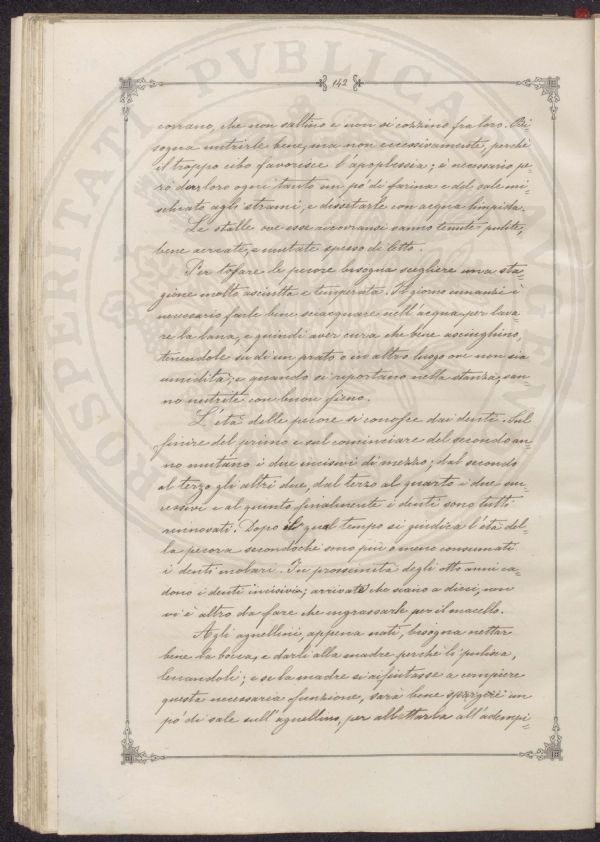 PROSPERITATI PVBLICAE AVGENDAE
142
corrano, che non saltino e non si cozzino fra loro. Bi=
sogna nutrirle bene, ma non eccessivamente, perchè
il troppo cibo favorisce l'apoplessia; è necessario pe=
rò dar loro ogni tanto un pò di farina e del sale mi=
schiato agli strami, e dissetarle con acqua limpida.
Le stalle ove esse ricovransi vanno tenute pulite,
bene aereate, e mutate spesso di letto.
Per tosare le pecore bisogna scegliere una sta=
gione molto asciutta e temperata. Il giorno innanzi è
necessario farle bene sciacquare nell'acqua per lava=
re la lana, e quindi aver cura che bene asciughino,
tenendole su di un prato o in altro luogo ove non sia
umidità; e quando si riportano nella stanza, san=
no nutrite con buon fieno.
L'età delle pecore si conosce dai denti. Sul
finire del primo e sul cominciare del secondo an=
no mutano i due incisivi di mezzo; dal secondo
al terzo gli altri due, dal terzo al quarto i due suc=
cessivi e al quinto finalmente i denti sono tutti
rinnovati. Dopo il qual tempo si giudica l'età del=
la pecora secondochè sono più o meno consumati
i denti molari. In prossimità degli otto anni ca=
dono i denti incisivi; arrivate che siano a dieci, non
vi è altro da fare che ingrassarle per il macello.
Agli agnellini, appena nati, bisogna nettar
bene la bocca, e darli alla madre perchè li pulisca,
leccandoli; e se la madre si rifiutasse a compiere
questa necessaria funzione, sarà bene spargere un
pò di sale sull'agnellino, per allettarla all'adempi=